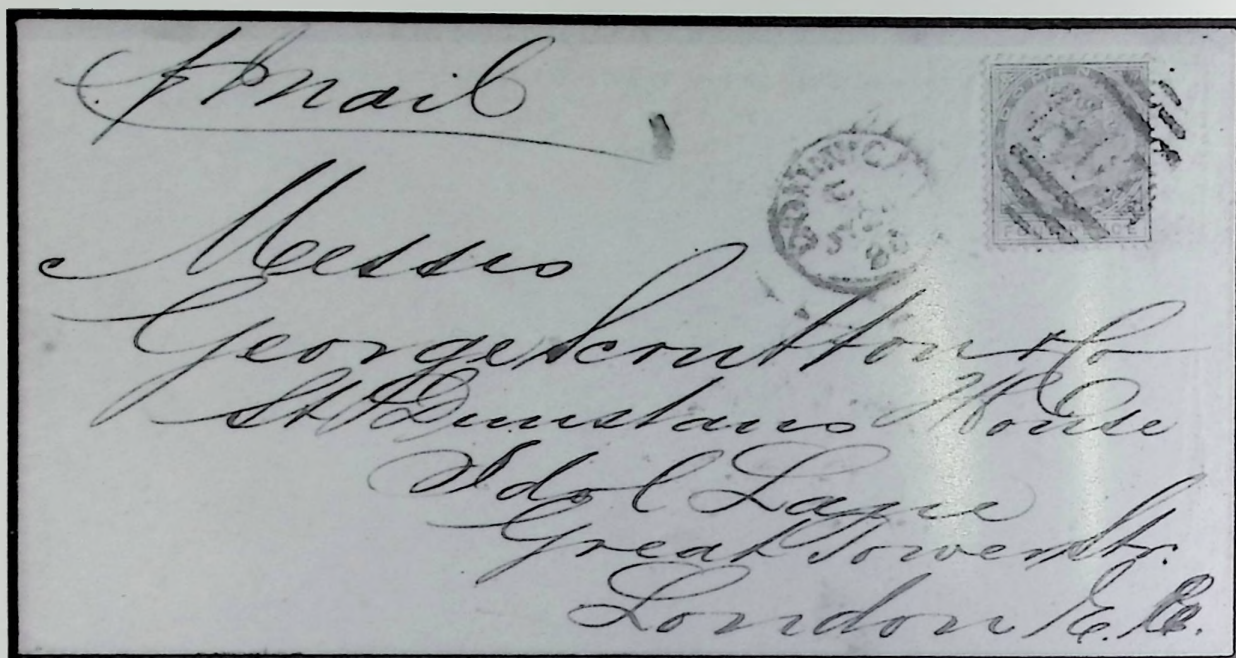 p mail
Messrs
George Scrutton & Co
St Dunstans House
Idol Lane
Great Tower Str.
London E.C.